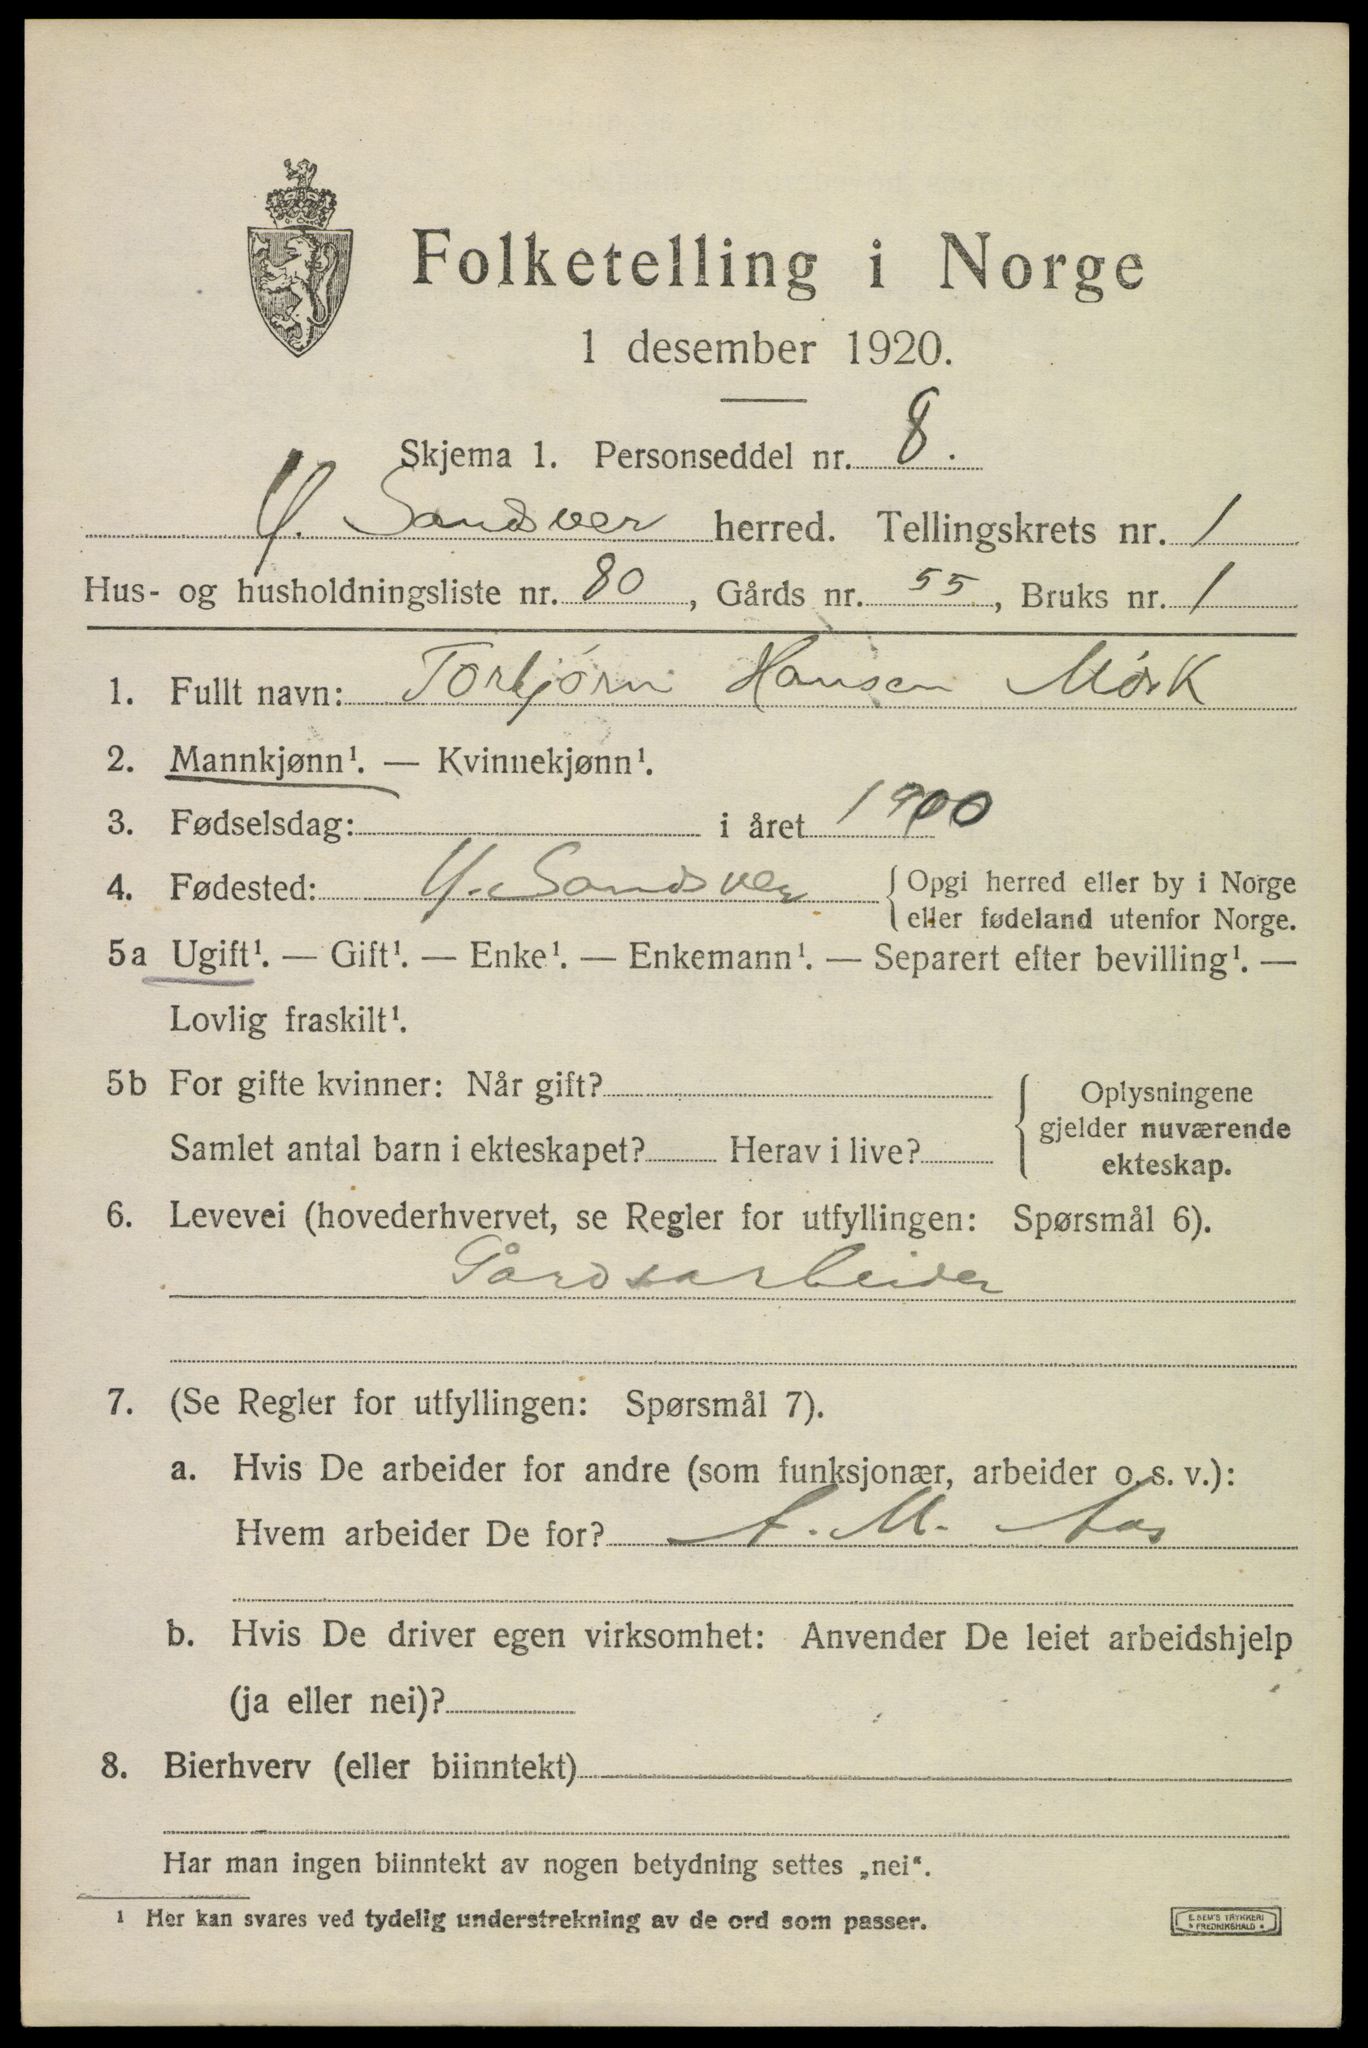 Folketelling i Norge
1 desember 1920.
Skjema 1. Personseddel nr. 8.
Y. Sandsver herred. Tellingskrets nr. 1
Hus- og husholdningsliste nr. 80, Gårds nr. 55, Bruks nr. 1
1. Fullt navn: Torbjørn Hansen Mørk
2. Mannkjønn¹. — Kvinnekjønn¹.
3. Fødselsdag: i året 1900
4. Fødested: Y. Sandsver { Opgi herred eller by i Norge
eller fødeland utenfor Norge.
5a Ugift¹. — Gift¹. — Enke¹. — Enkemann¹. — Separert efter bevilling¹. —
Lovlig fraskilt¹.
5b For gifte kvinner: Når gift?
Samlet antal barn i ekteskapet? Herav i live?
Oplysningene
gjelder nuværende
ekteskap.
6. Levevei (hovederhvervet, se Regler for utfyllingen: Spørsmål 6).
Gårdsarbeider
7. (Se Regler for utfyllingen: Spørsmål 7).
a. Hvis De arbeider for andre (som funksjonær, arbeider o. s. v.):
Hvem arbeider De for? A. M. Aas
b. Hvis De driver egen virksomhet: Anvender De leiet arbeidshjelp
(ja eller nei)?
8. Bierhverv (eller biinntekt)
Har man ingen biinntekt av nogen betydning settes „nei“.
¹ Her kan svares ved tydelig understrekning av de ord som passer.
E. SEM'S TRYKKERI
FREDRIKSHALD